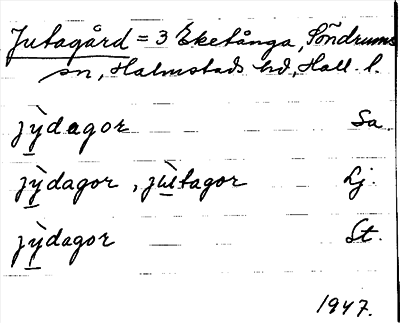 Jutagård = 3 Eketånga, Söndrums
sn, Halmstads hd, Hall. l.
jỳ̱dagor Sa.
jỳ̱dagor, jù̱tagor Lj.
jỳ̱dagor St.
1947.